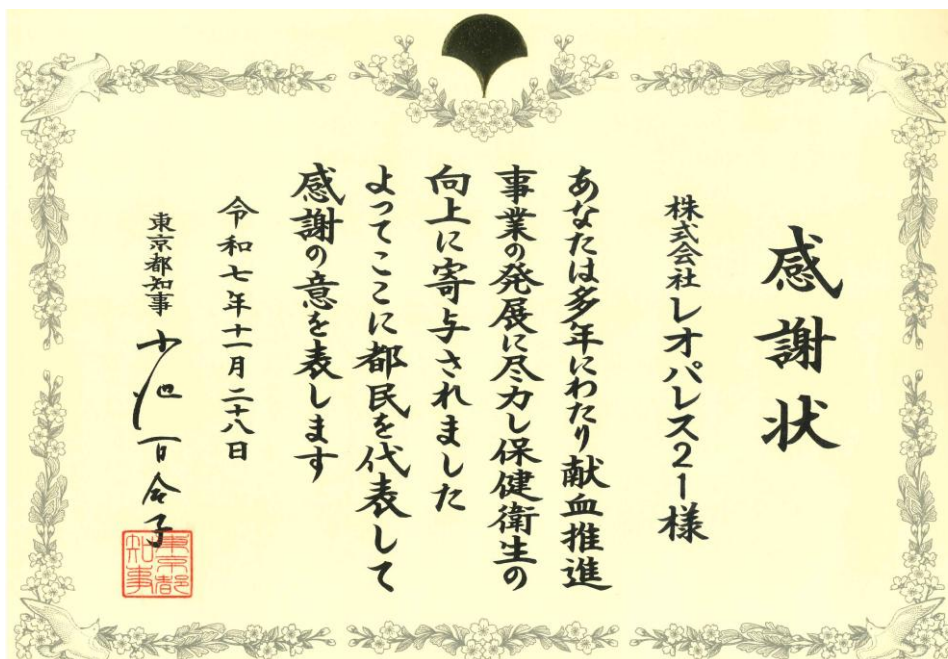 感謝状
株式会社レオパレス21様
あなたは多年にわたり献血推進
事業の発展に尽力し保健衛生の
向上に寄与されました
よってここに都民を代表して
感謝の意を表します
令和七年十一月二十八日
東京都知事 小池百合子
東京都
知事